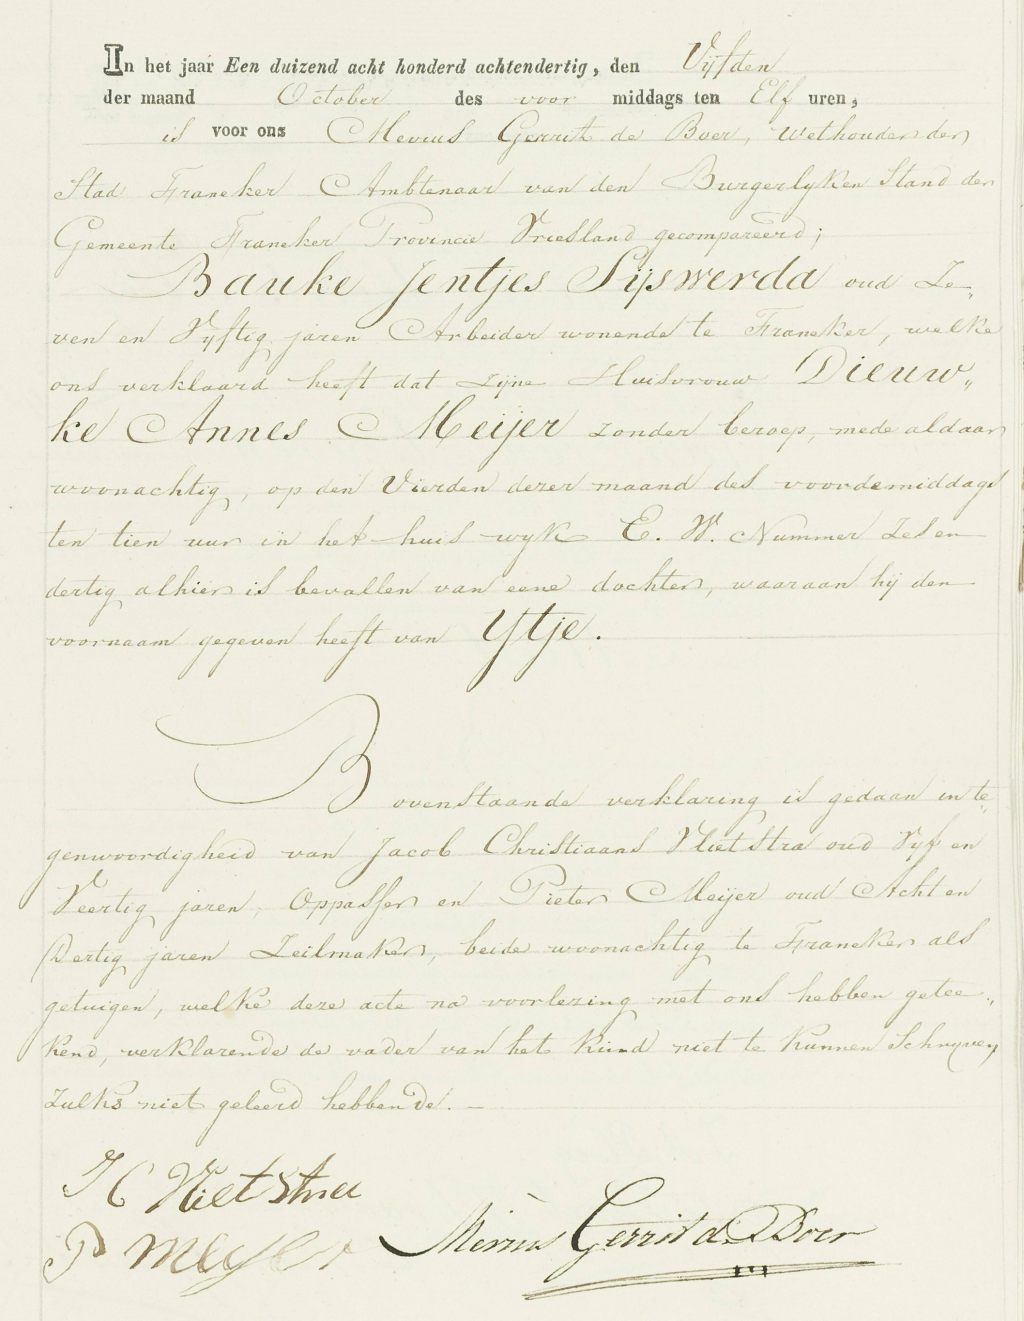 In het jaar Een duizend acht honderd achtendertig, den Vijfden
der maand October des voor middags ten Elf uren,
is voor ons Mevius Gerrit de Boer, wethouder der
Stad Franeker Ambtenaar van den Burgerlyken Stand der
Gemeente Franeker Provincie Vriesland gecompareerd;
Bauke Jentjes Sijswerda oud Ze„
ven en Vyftig jaren Arbeider wonende te Franeker, welke
ons verklaard heeft dat zijne Huisvrouw Dieuw„
ke Annes Meijer zonder beroep, mede aldaar
woonachtig, op den Vierden dezer maand des voordemiddags
ten tien uur in het huis wyk E. W. Nummer Zes en
dertig alhier is bevallen van eene dochter, waaraan hij den
voornaam gegeven heeft van Ytje.
Bovenstaande verklaring is gedaan in te„
genwoordigheid van Jacob Christiaans Vlietstra oud Vyf en
Veertig jaren, Oppasser en Pieter Meijer oud Acht en
Dertig jaren Zeilmaker, beide woonachtig te Franeker als
getuigen, welke deze acte na voorlezing met ons hebben getee„
kend, verklarende de vader van het kind niet te kunnen Schryven
zulks niet geleerd hebbende. —
J C Vlietstra
P Meyer Mevius Gerrit de Boer